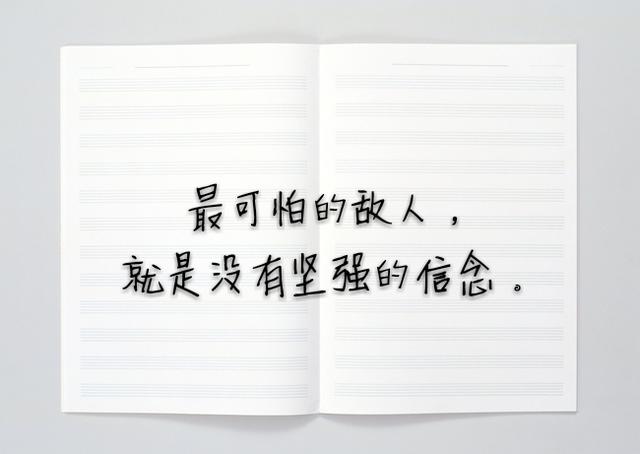 最可怕的敌人，
就是没有坚强的信念。